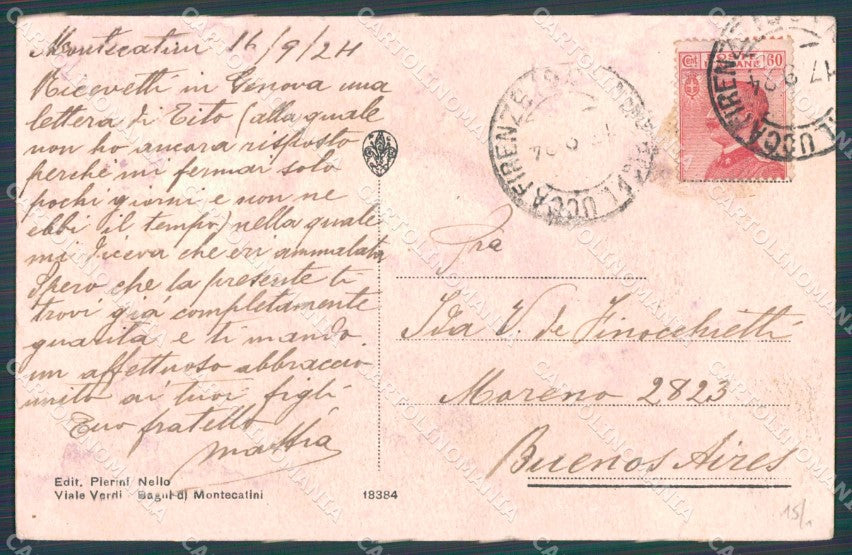 Montecatini 16/9/24
Ricevetti in Genova una
lettera di Tito (alla quale
non ho ancora risposto
perchè mi fermai solo
pochi giorni e non ne
ebbi il tempo) nella quale
mi diceva che eri ammalata
Spero che la presente ti
trovi già completamente
guarita e ti mando
un affettuoso abbraccio
unito ai tuoi figli
Tuo fratello
Mattia
Edit. Pierini Nello
Viale Verdi - Bagni di Montecatini
18384
Cent 60
LUCCA FIRENZE
17 9 24
LUCCA FIRENZE
Ida V. de Finocchietti
Moreno 2823
Buenos Aires
15/.
CARTOLINOMANIA